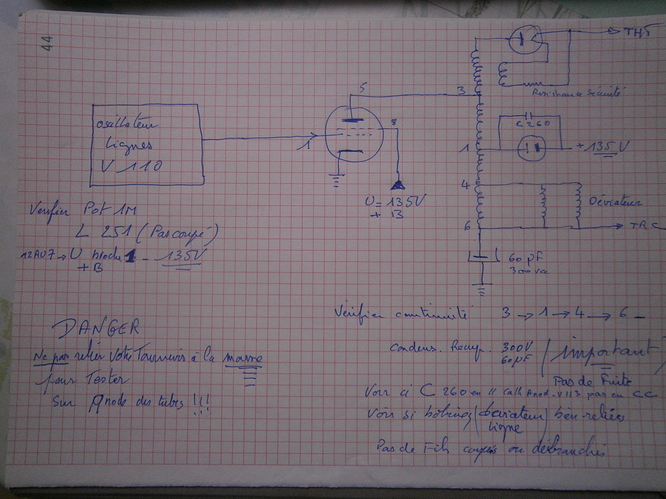 44
THT
5
3
Resistance Sécurité
oscillateur
Lignes
V 110
1
8
C 260
1
+ 135 V
U = 135V
+ B
4
Déviateur
6
TRC
60 pF
3000V
Verifier Pot 1M
L 251 (Pas coupé)
12AU7 → U broche 1 - 135V
+ B
Vérifier continuité 3 → 1 → 4 → 6 -
DANGER
Ne pas relier Votre Tournevis à la masse
pour Tester
Sur Anode des tubes !!!
Condens. Recup. 300V
60pF
(important)
Pas de Fuite
Voir si C 260 en // Cath Anod. V113 pas en CC
Voir si bobines (déviateur) bien reliées
Ligne
Pas de Fils coupés ou débranchés